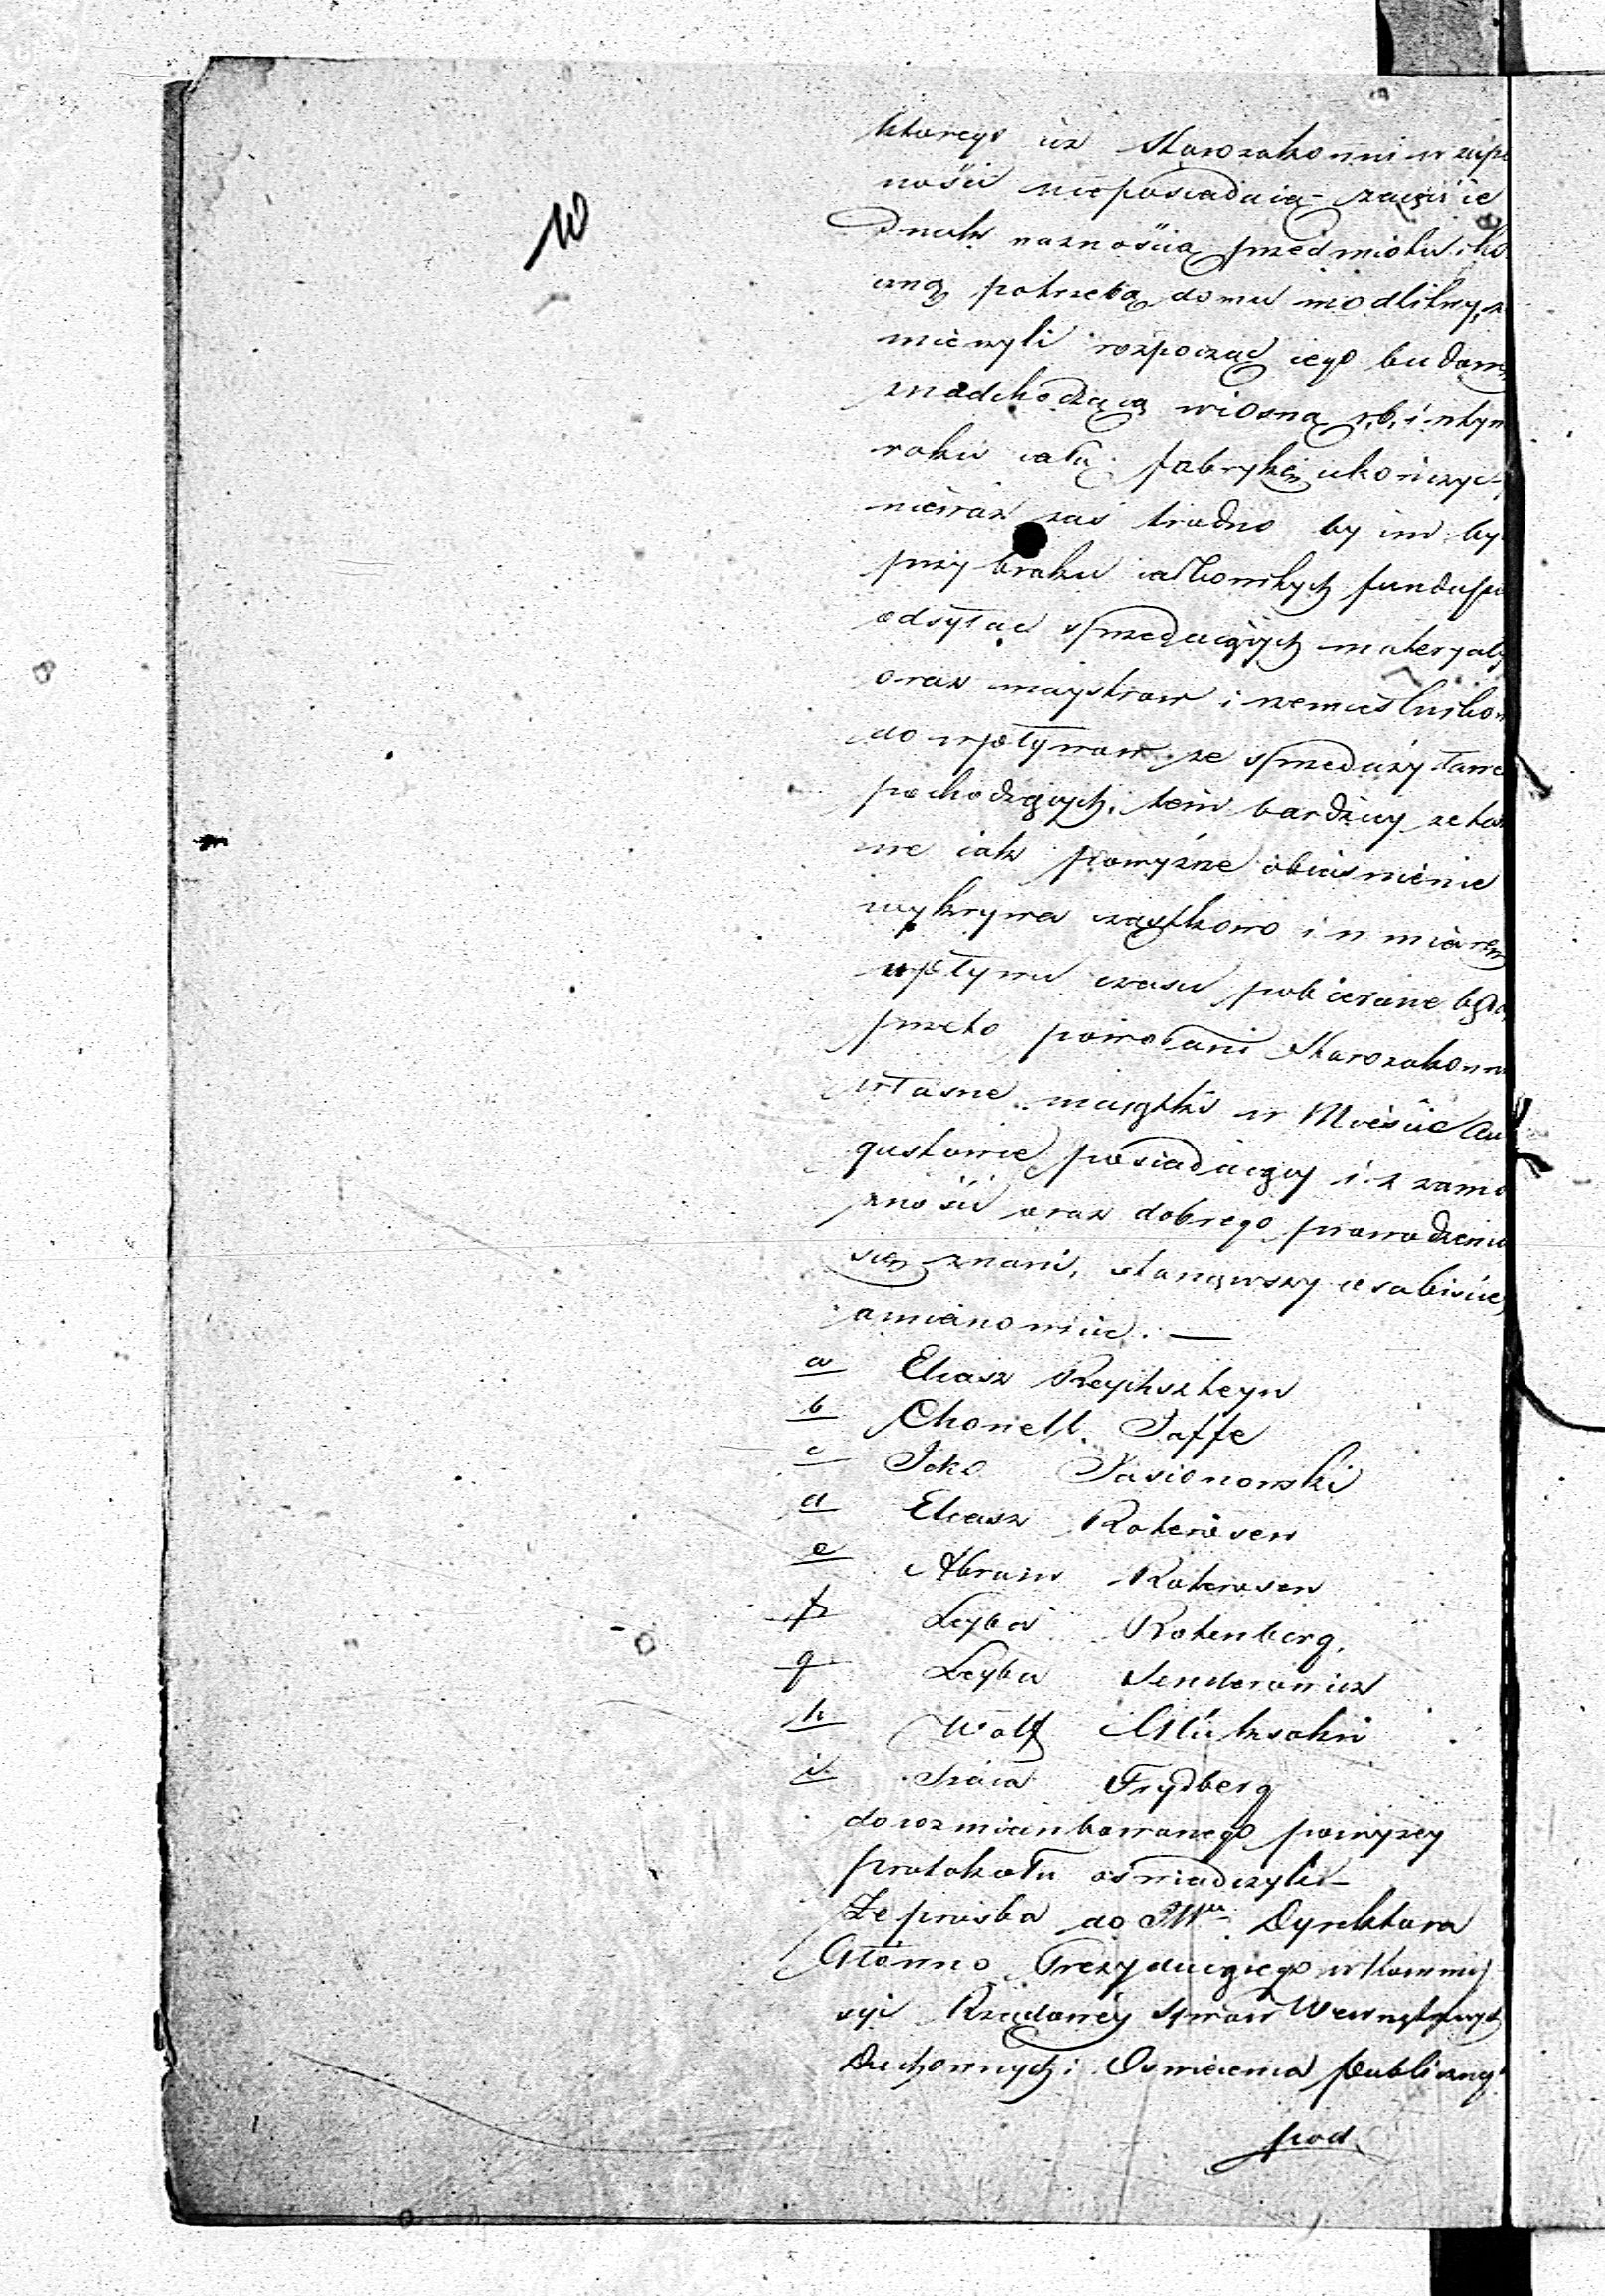 10
którego iż Starozakonni w zupe
ności nieposiadaią - zaięci ie
dnak ważnością przedmiotu i ko
czną potrzebą domu modlitwy, za
mierzyli rozpocząć iego budowę
z nadchodzącą wiosną r, b, i w tym
roku całą fabrykę ukończyć -
nieważ zaś trudno by im by
przy braku całkowitych fundusz
odsyłać sprzedaiących materyały
oraz maystrow i rzemieślników
do wpływow ze sprzedaży ławe
pochodzących, tem bardziey że tak
we iak powyższe obiaśnienie
wykrywa cząstkowo i w miarę
wpływu czasu pobierane będą
przeto powołani Starozakonni
własne maiątki w Mieście Au
gustowie posiadaiący i z zamo
żności oraz dobrego prowadzenia
się znani, stanąwszy osobiście,
a mianowicie. —
a Eliasz Reychszteyn
b Chonell. Jaffe
c Icko Jasionowski
d Eliasz Rotenösen
e Abram Rotenosen
f Leyba Rotenberg.
g Leyba Senderowicz
h Wolf Glüksohn
i Szaia Frydberg
do rozmiankowanego powyżey
protokołu oświadczyli -
Że prośba do JWo Dyrektora
Główno Prezyduiącego w Kommis
syi Rządowéy Spraw Wewnętrznych
Duchownych i Oswiecenia Publiczneg
pod